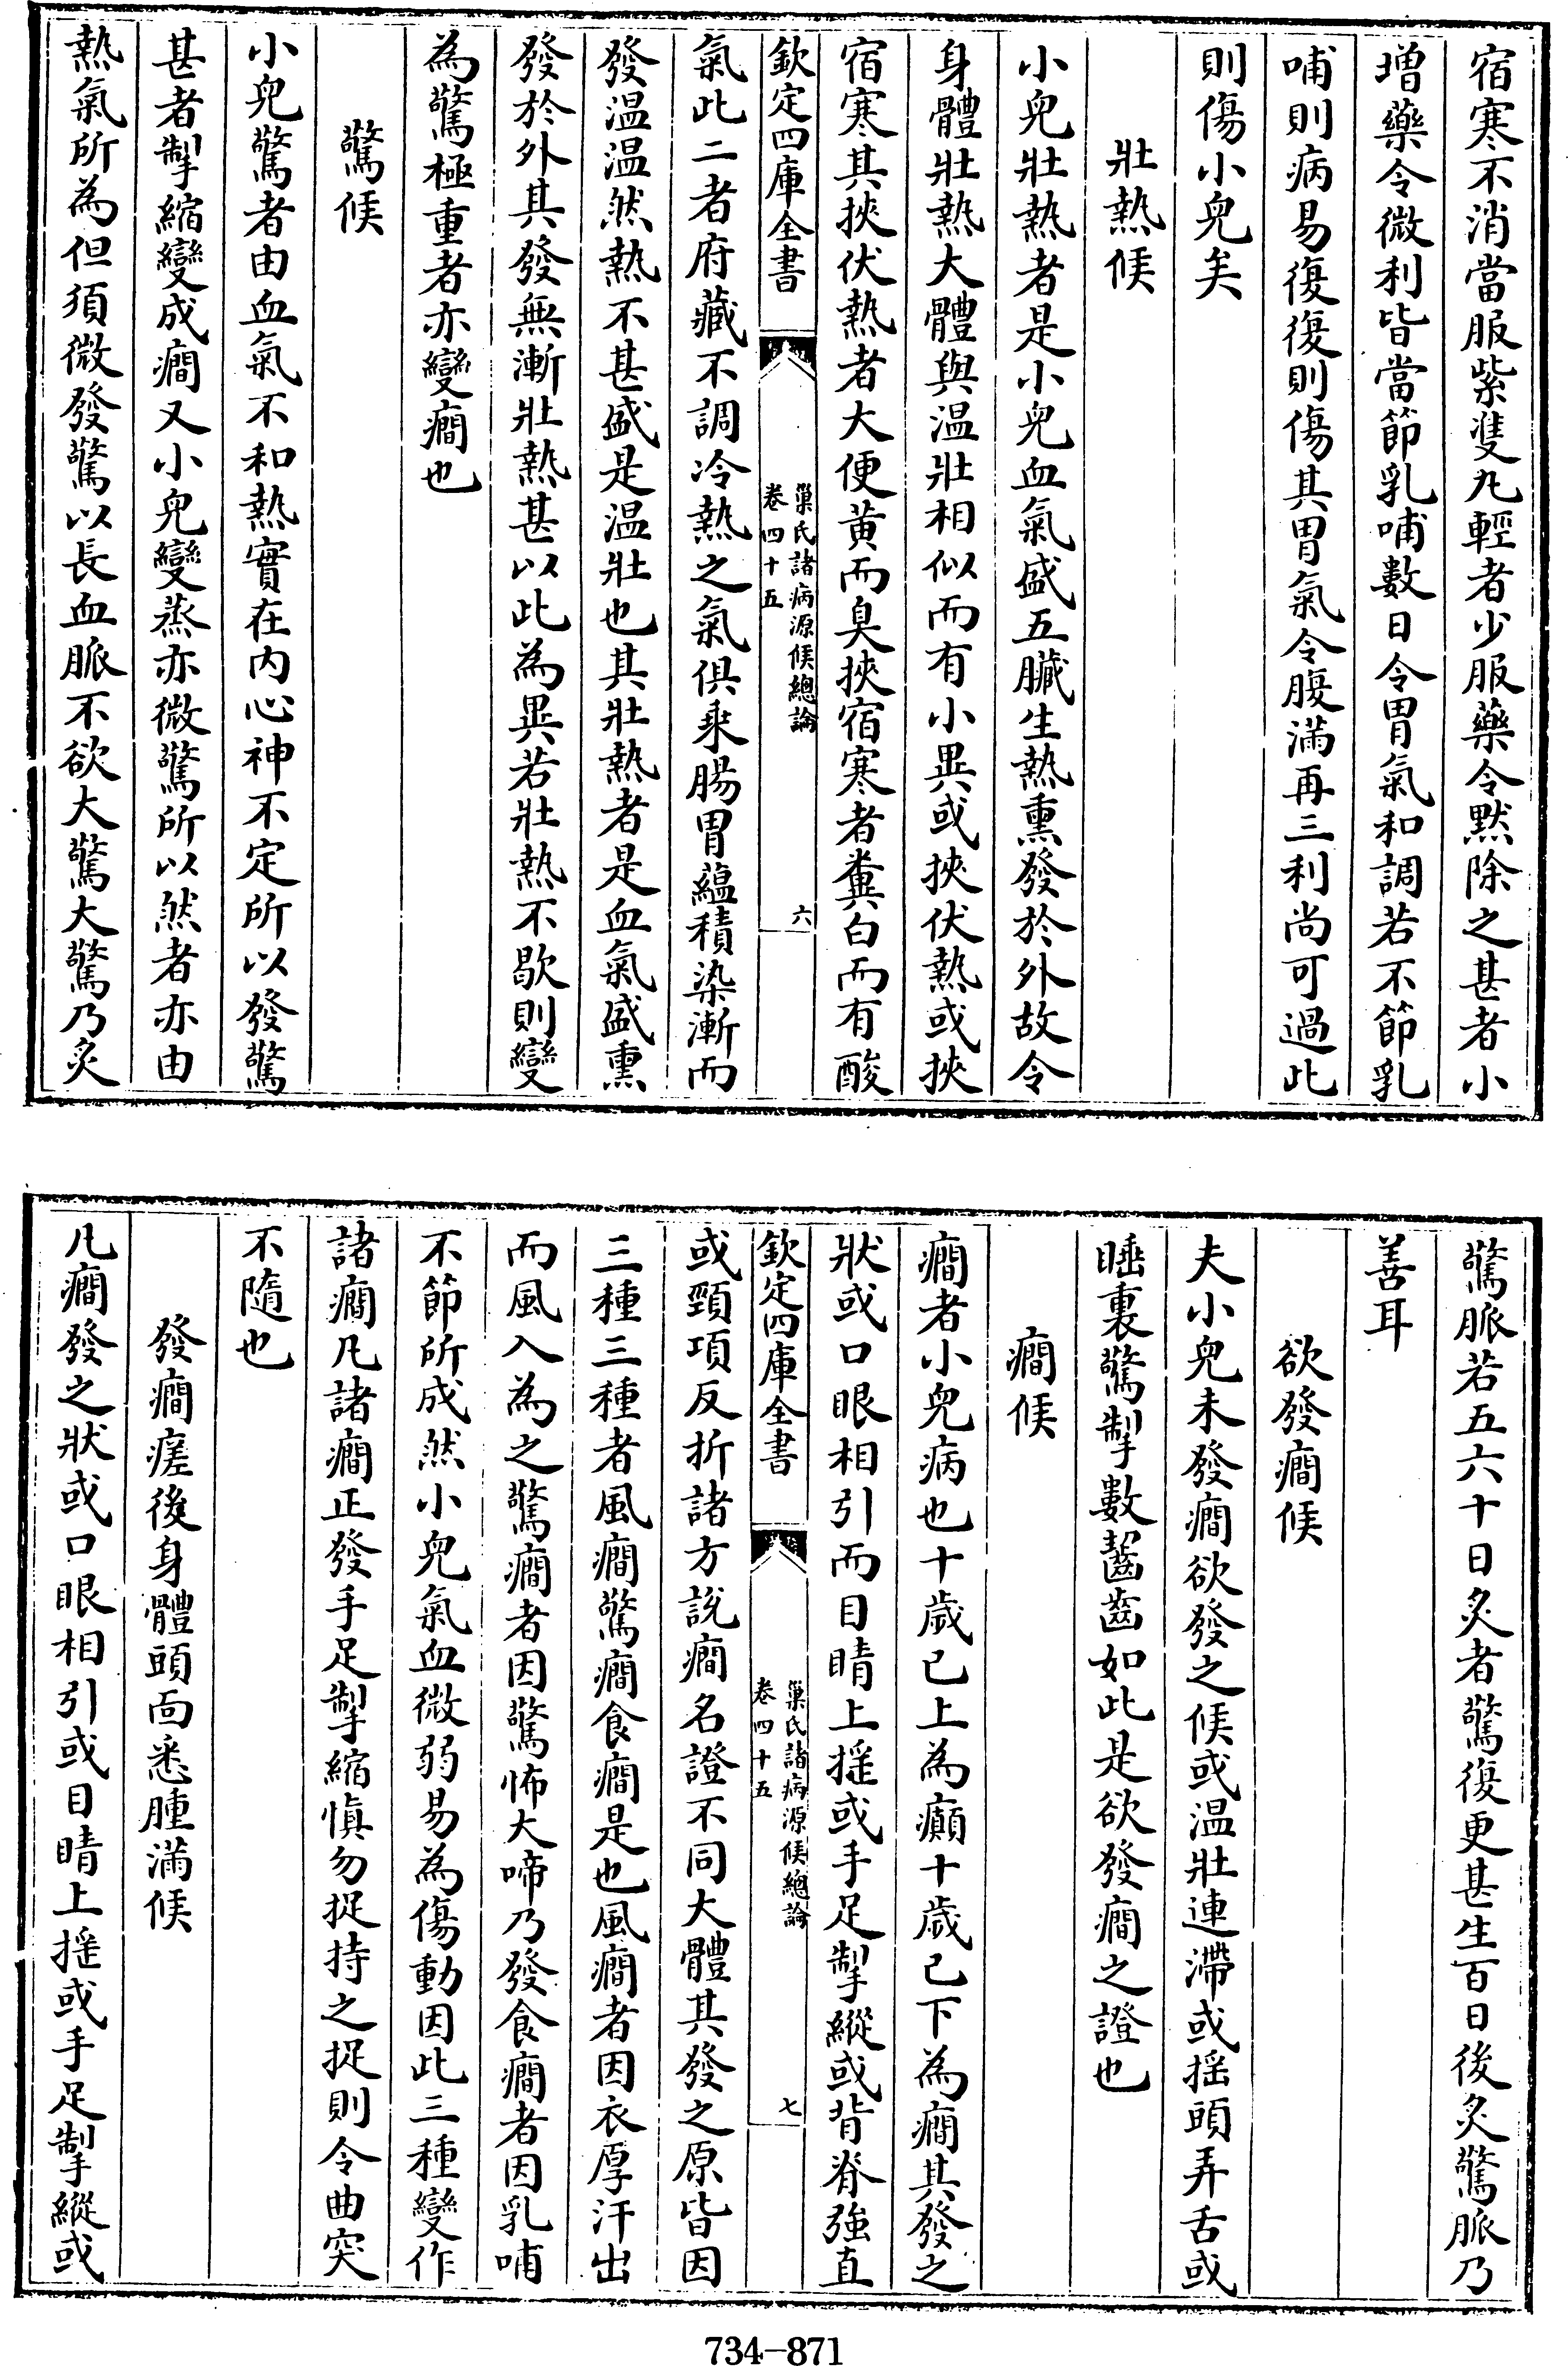 宿寒不消當服紫䨇丸輕者少服藥令默除之甚者小
增藥令微利皆當節乳哺數日令胃氣和調若不節乳
哺則病易復復則傷其胃氣令腹滿再三利尚可過此
則傷小兒矣
壯熱候
小兒壯熱者是小兒血氣盛五臟生熱熏發於外故令
身體壯熱大體與温壯相似而有小異或挾伏熱或挾
宿寒其挾伏熱者大便黄而臭挾宿寒者糞白而有酸
欽定四庫全書
巢氏諸病源候總論
卷四十五
六
氣此二者府藏不調冷熱之氣俱乘腸胃藴積染漸而
發温温然熱不甚盛是温壯也其壯熱者是血氣盛熏
發於外其發無漸壯熱甚以此為異若壯熱不歇則變
為驚極重者亦變癎也
驚候
小兒驚者由血氣不和熱實在内心神不定所以發驚
甚者掣縮變成癎又小兒變蒸亦微驚所以然者亦由
熱氣所為但須微發驚以長血脈不欲大驚大驚乃灸
驚脈若五六十日灸者驚復更甚生百日後灸驚脈乃
善耳
欲發癎候
夫小兒未發癎欲發之候或温壯連滯或揺頭弄舌或
睡裏驚掣數齧齒如此是欲發癎之證也
癎候
癎者小兒病也十歲已上為癲十歲已下為癎其發之
狀或口眼相引而目睛上揺或手足掣縱或背脊強直
欽定四庫全書
巢氏諸病源候總論
卷四十五
七
或頸項反折諸方說癎名證不同大體其發之原皆因
三種三種者風癎驚癎食癎是也風癎者因衣厚汗出
而風入為之驚癎者因驚怖大啼乃發食癎者因乳哺
不節所成然小兒氣血微弱易為傷動因此三種變作
諸癎凡諸癎正發手足掣縮慎勿捉持之捉則令曲突
不隨也
發癎瘥後身體頭面悉腫滿候
凡癎發之狀或口眼相引或目睛上揺或手足掣縱或
734-871